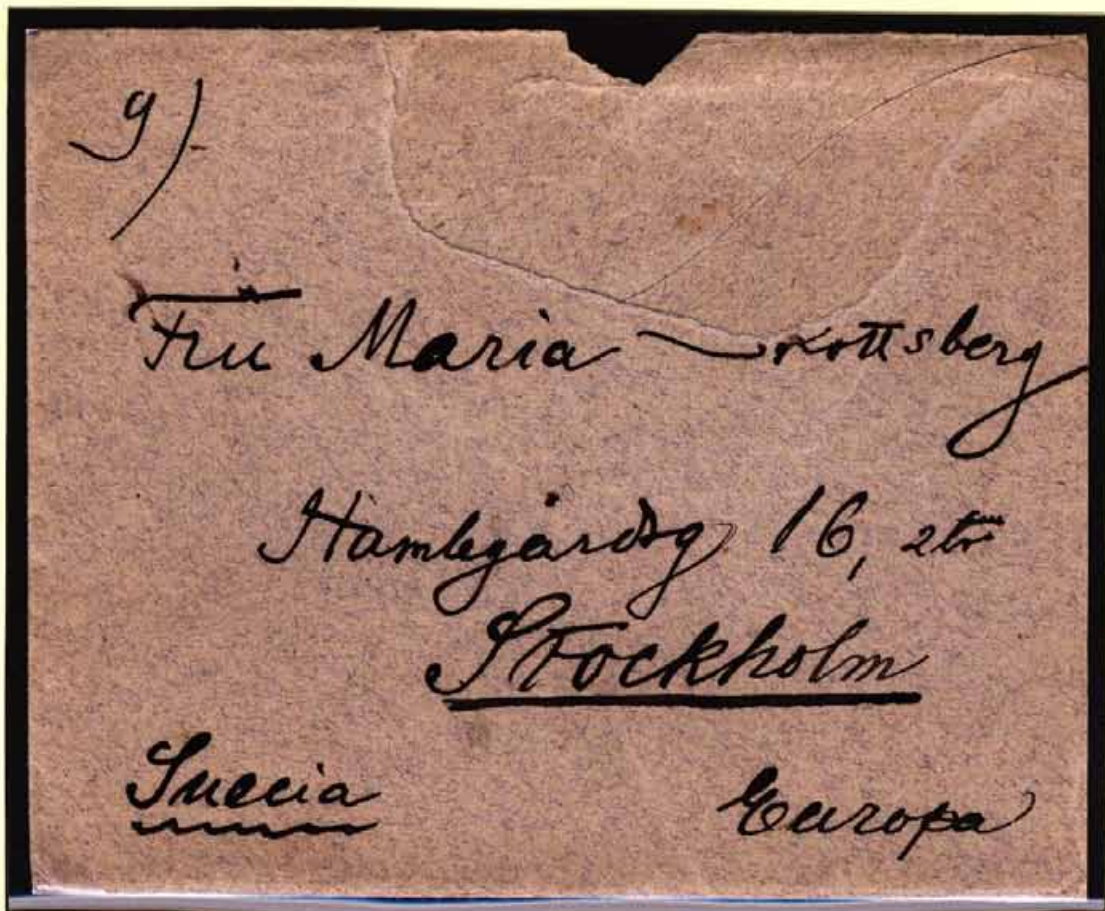 9)
Fru Maria Skottsberg
Humlegårdsg 16, 2tr
Stockholm
Suecia Europa